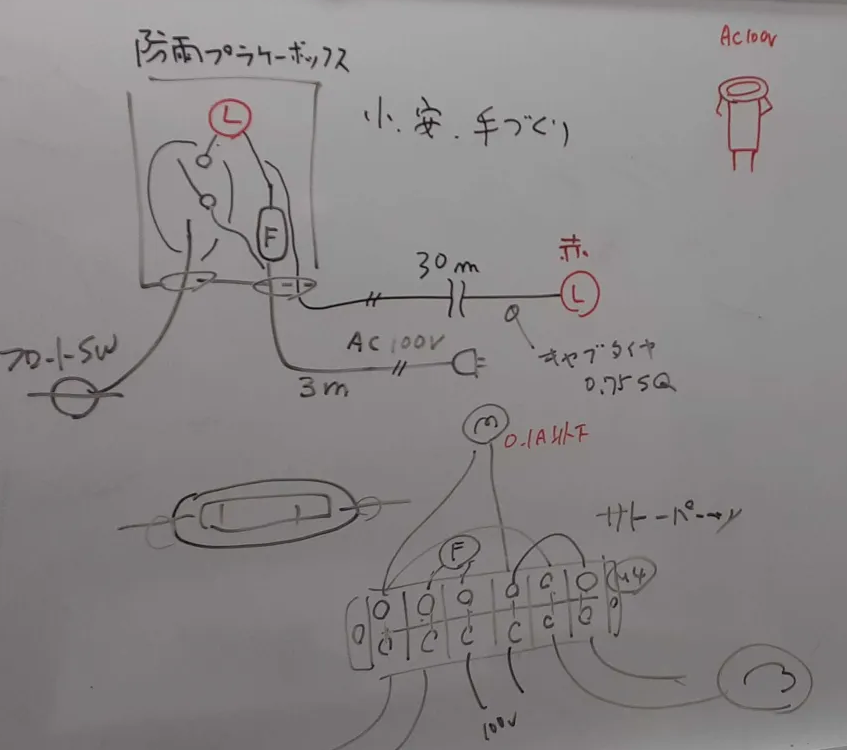 AC100V
防雨プラケーボックス
L
小、安、手づくり
F
30m
赤
L
フロートSW
AC100V
キャブタイヤ
0.75SQ
3m
M
0.1A以下
サトーパーツ
F
M4
100V